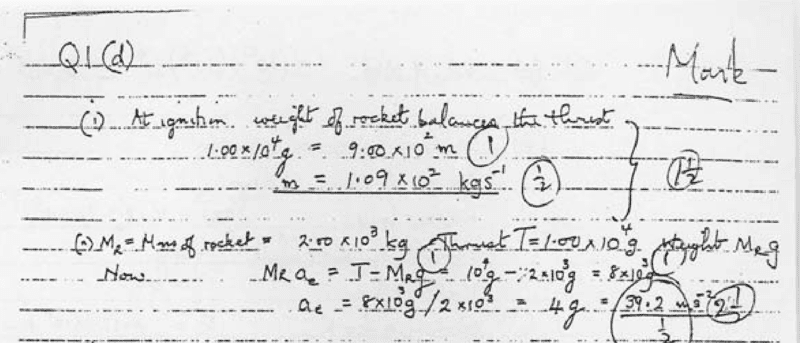 Q1(d) Mark
(i) At ignition weight of rocket balances the thrust
1.00 × 10⁴g = 9.00 × 10² m ①
m = 1.09 × 10² kgs⁻¹ ½ 1½
(ii) M_R = Mass of rocket = 2.00 × 10³ kg Thrust T = 1.00 × 10⁴ g Weight M_R g
Now M_R a_e = T - M_R g ① = 10⁴g - 2×10³g = 8×10³g ①
a_e = 8×10³g / 2×10³ = 4g = 39.2 m s⁻² ½ 2½